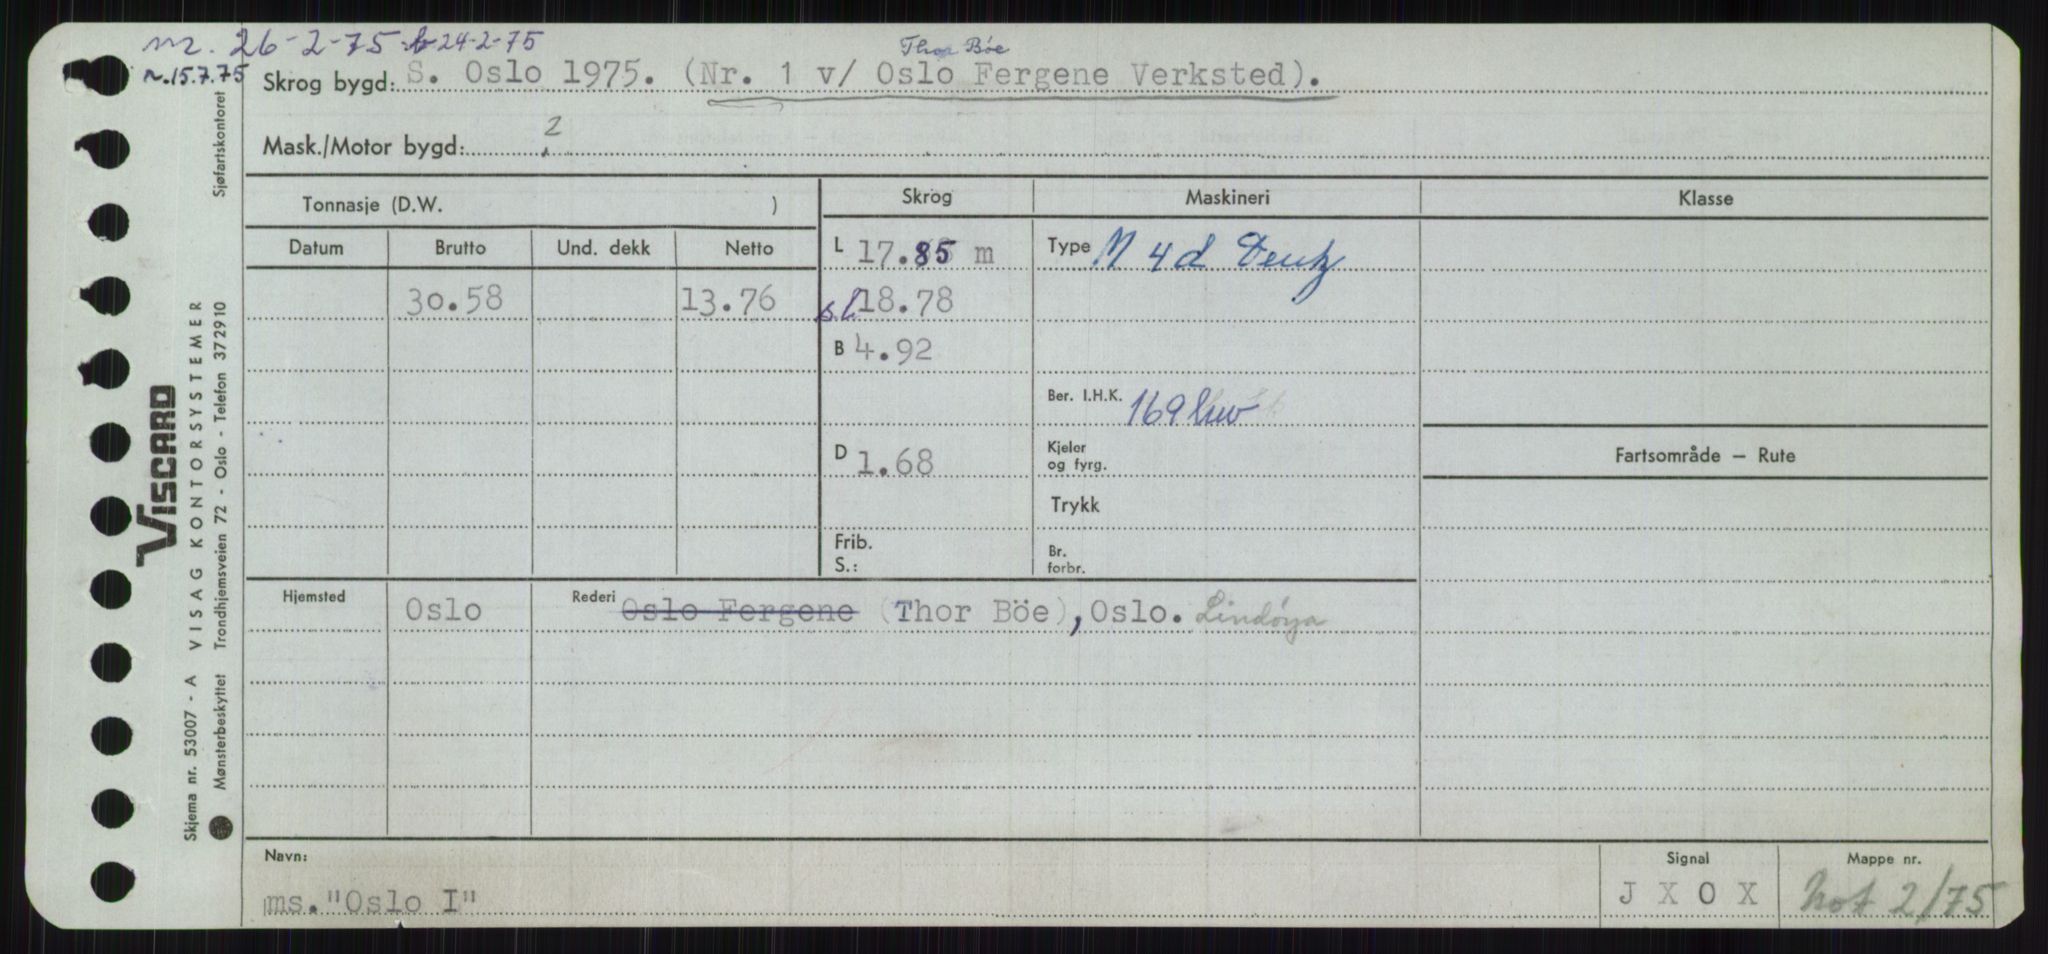 nr. 26-2-75 b 24-2-75
n. 15.7.75
Thor Böe
Skrog bygd: S. Oslo 1975. (Nr. 1 v/ Oslo Fergene Verksted).
Mask./Motor bygd: ?
Tonnasje (D.W. ) Skrog Maskineri Klasse
Datum Brutto Und. dekk Netto L 17.85 m Type M 4d Deutz
30.58 13.76 s.l. 18.78
B 4.92
Ber. I.H.K. 169 kw
D 1.68 Kjeler og fyrg. Fartsområde — Rute
Trykk
Frib. S.: Br. forbr.
Hjemsted Oslo Rederi Oslo Fergene (Thor Böe), Oslo. Lindøya
Navn: Signal Mappe nr.
ms. "Oslo I" J X O X Not 2/75
VISCARD
Skjema nr. 53007 - A VISAG KONTORSYSTEMER
Mønsterbeskyttet Trondhjemsveien 72 - Oslo - Telefon 372910 Sjøfartskontoret